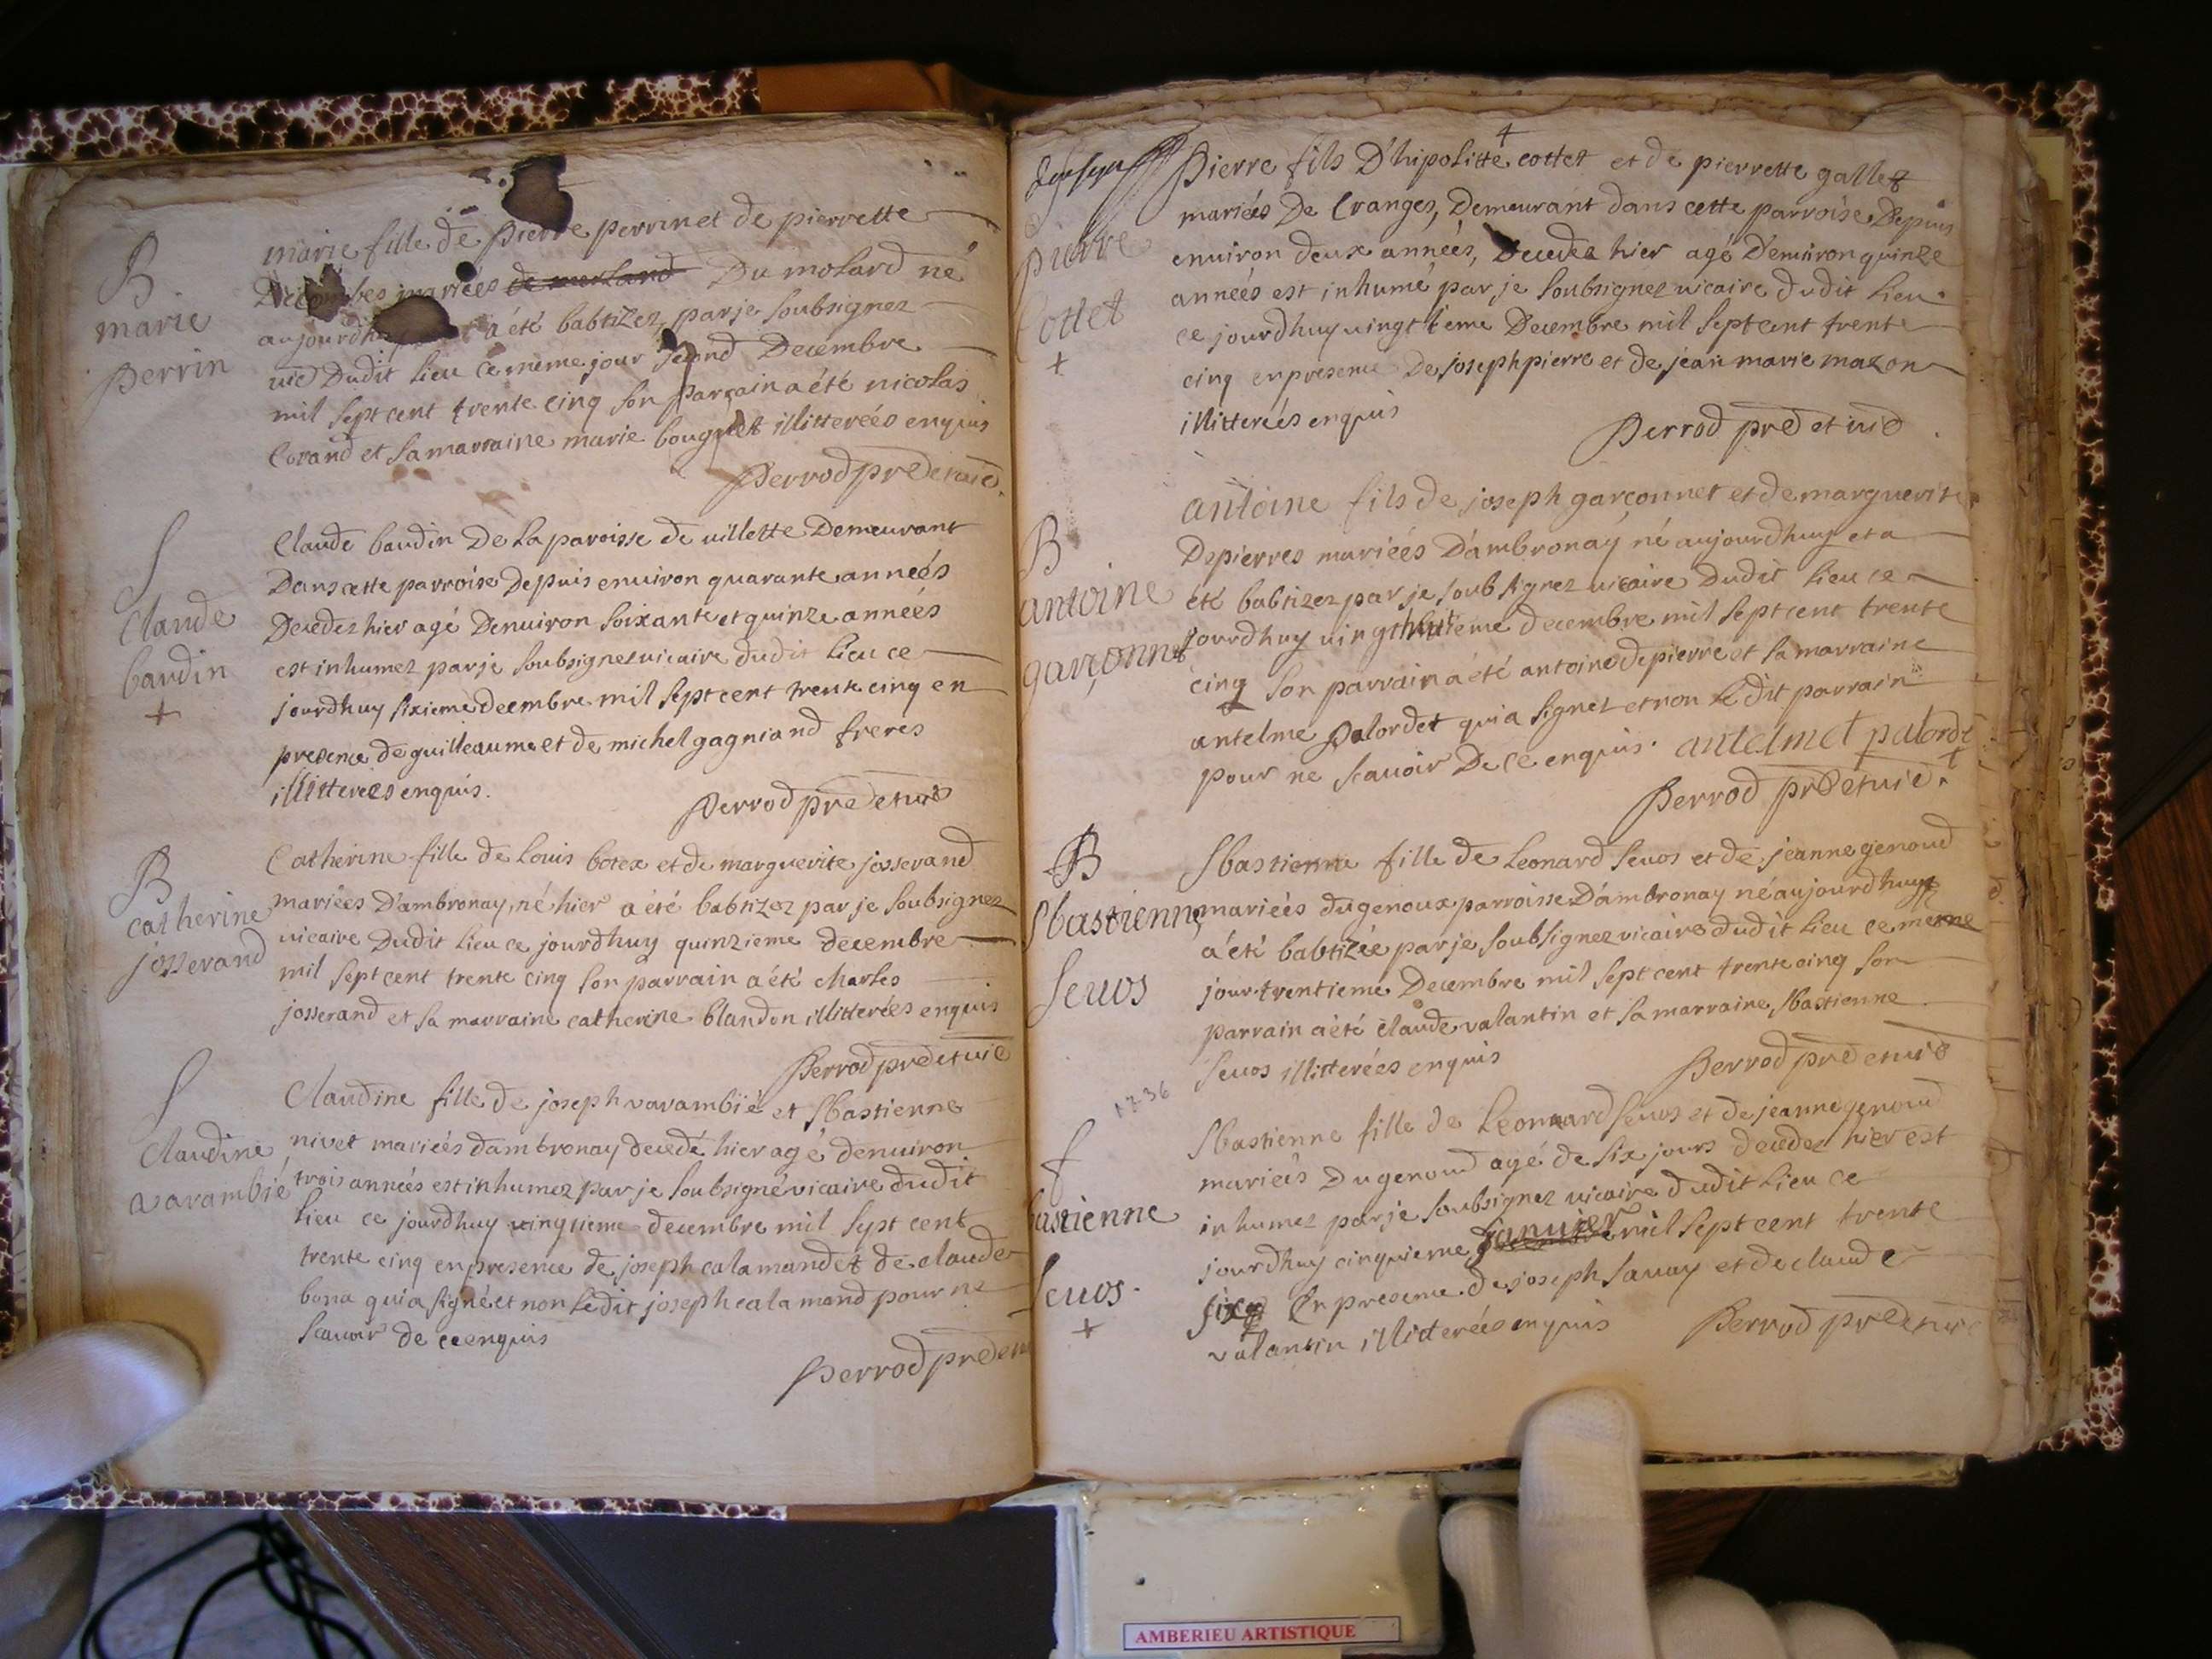 B
marie
perrin
marie fille de pierre perrin et de pierrette
mariées de merland Du molard né
aujourdhuy a été babtizez par je soubsignez
vic Dudit Lieu ce même jour second Decembre
mil sept cent trente cinq son parrain a été nicolas
Corand et sa marraine marie bouguet illitereés enquis
Perrod pre et vic
S
Claude
baudin
+
Claude baudin De La paroisse de villette Demeurant
Dans cette parroise Depuis environ quarante anneés
Decedez hier agé Denviron soixante et quinze anneés
est inhumez par je soubsignez vicaire dudit Lieu ce
jourdhuy sixieme decembre mil sept cent trente cinq en
presence de guilleaume et de michel gagniand freres
illitereés enquis.
Perrod pre et vic
B
catherine
josserand
Catherine fille de Louis botex et de marguerite josserand
mariées D'ambronay, né hier a été babtizez par je soubsignez
vicaire Dudit Lieu ce jourdhuy quinzieme decembre
mil sept cent trente cinq son parrain a été charles
josserand et sa marraine catherine blandon illiterées enquis
Perrod pre et vic
S
Claudine
varambié
Claudine fille de joseph varambié et Sbastienne
nivet marieés dambronay decedé hier agé denviron
trois anneés est inhumez par je soubsigné vicaire dudit
Lieu ce jourdhuy vingtieme decembre mil sept cent
trente cinq en presence de joseph calamand et de claude
bona qui a signé et non Ledit joseph calamand pour ne
scavoir de ce enquis
Perrod pre et vi
pierre
Cottet
+
4
Pierre fils D'hipolitte cottet et de pierrette gallet
mariées De Cranges, Demeurant dans cette parroise Depuis
environ deux anneés, Decedez hier agé D'environ quinze
anneés est inhumé par je soubsignez vicaire dudit Lieu
ce jourdhuy vingt Decembre mil sept cent trente
cinq en presence De joseph pierre et de jean marie mazon
illitereés enquis
Perrod pre et vic
B
antoine
garçonnet
antoine fils de joseph garçonnet et de marguerite
Depierres marieés D'ambronay né aujourdhuy et a
été babtizez par je soubsignez vicaire Dudit Lieu ce
jourdhuy vingt huitieme decembre mil sept cent trente
cinq son parrain a été antoine depierre et sa marraine
antelme palordet qui a signez et non Ledit parrain
pour ne scavoir De ce enquis. antelmet palordet
Perrod pre et vic
B
Sbastienne
Sevos
Sbastienne fille de Leonard Sevos et de jeanne genoud
marieés du genoux parroisse D'ambronay né aujourdhuy
a été babtizée par je soubsignez vicaire dudit Lieu ce meme
jour trentieme Decembre mil sept cent trente cinq son
parrain a été claude valantin et sa marraine Sbastienne
Sevos illitereés enquis
Perrod pre et vic
1736
S
bastienne
Sevos.
+
Sbastienne fille de Leonnard Sevos et de jeanne genoud
marieés Du genoud agé de six jours decedez hier est
inhumez par je soubsignez vicaire dudit Lieu ce
jourdhuy cinquieme janvier mil sept cent trente
six En presence de joseph Savay et de claude
valantin illitereés enquis
Perrod pre et vic
AMBERIEU ARTISTIQUE